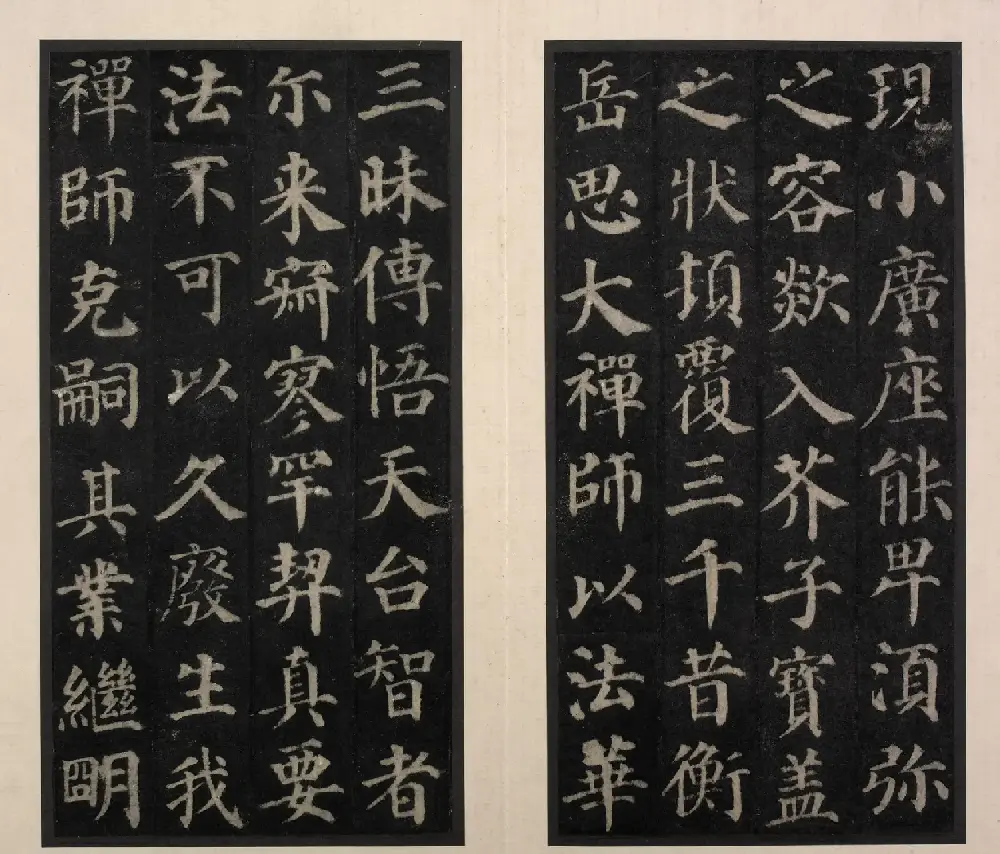 現小廣座能卑湏弥
之容欻入芥子寶盖
之狀頓覆三千昔衡
岳思大禪師以法華
三昧傳悟天台智者
尓来寂寥罕契真要
法不可以久廢生我
禪師克嗣其業繼明